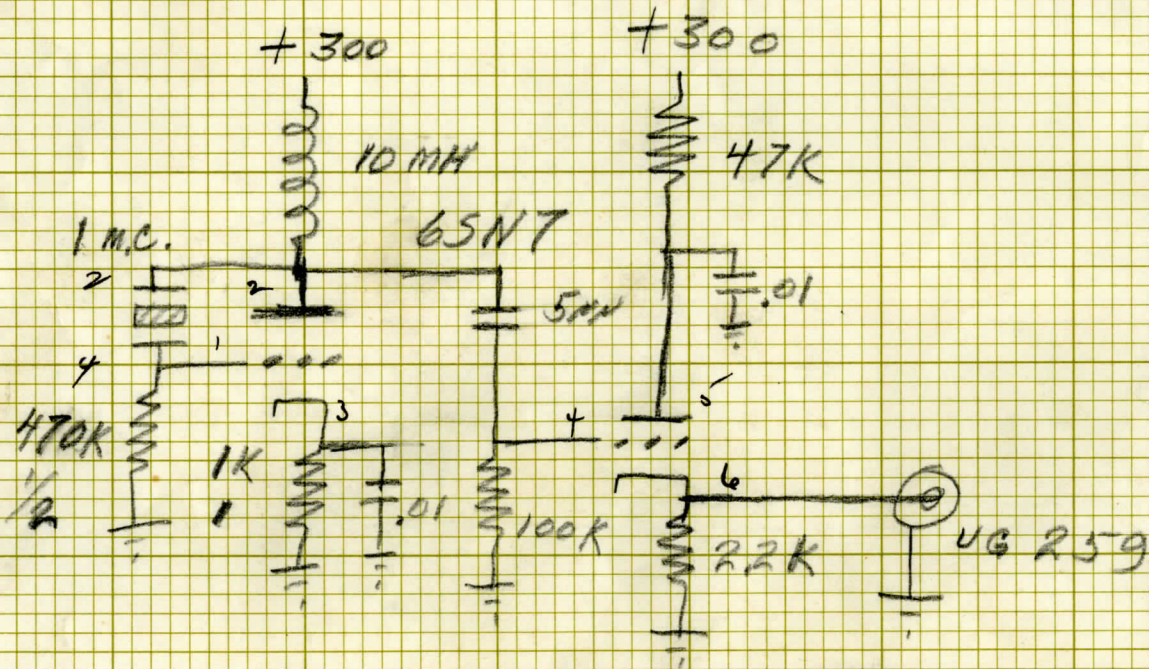 + 300
+ 300
10 MH
47K
1 M.C.
6SN7
2
2
5MM
.01
4
1
5
470K
1/2
3
4
1K
1
.01
100K
6
22K
UG 259